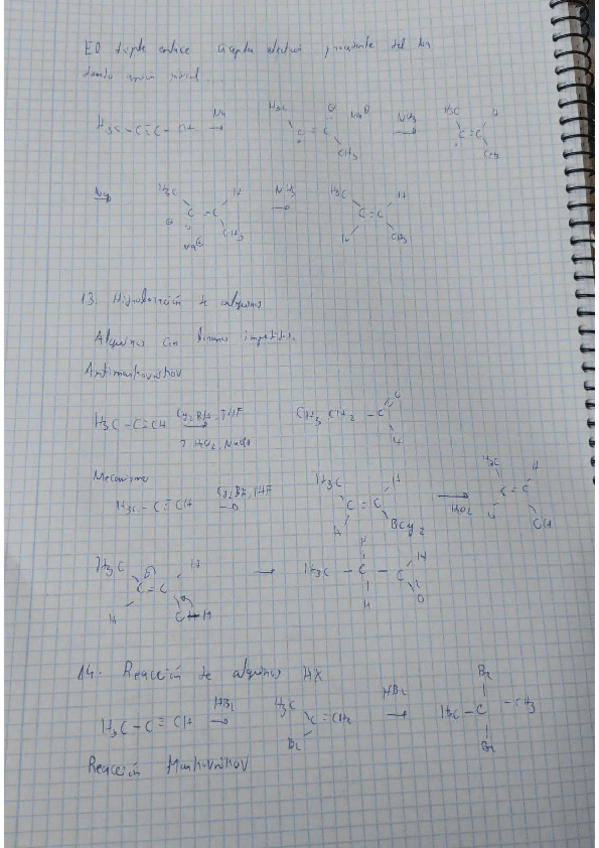 El triple enlace acepta electrón procedente del
H3C-C≡C-CH Na → H3C C=C CH3 Na⊕ NH3 → H3C C=C H CH3
Na H3C C=C H CH3 Na⊕ NH3 → H3C C=C H H CH3
13. Hidroboración de alquinos
Alquinos con boranos impedidos.
Antimarkovnikov
H3C-C≡CH Cy2BH, THF → CH3CH2-C O H
H2O2, NaOH
Mecanismo
H3C-C≡CH Cy2BH, THF → H3C C=C H H BCy2 → H2O2 H3C C=C H H OH
H3C C=C H H → H3C-C-C H H H O
14. Reacción de alquinos HX
H3C-C≡CH HBr → H3C C=CH2 Br HBr → H3C-C-CH3 Br Br
Reacción Markovnikov